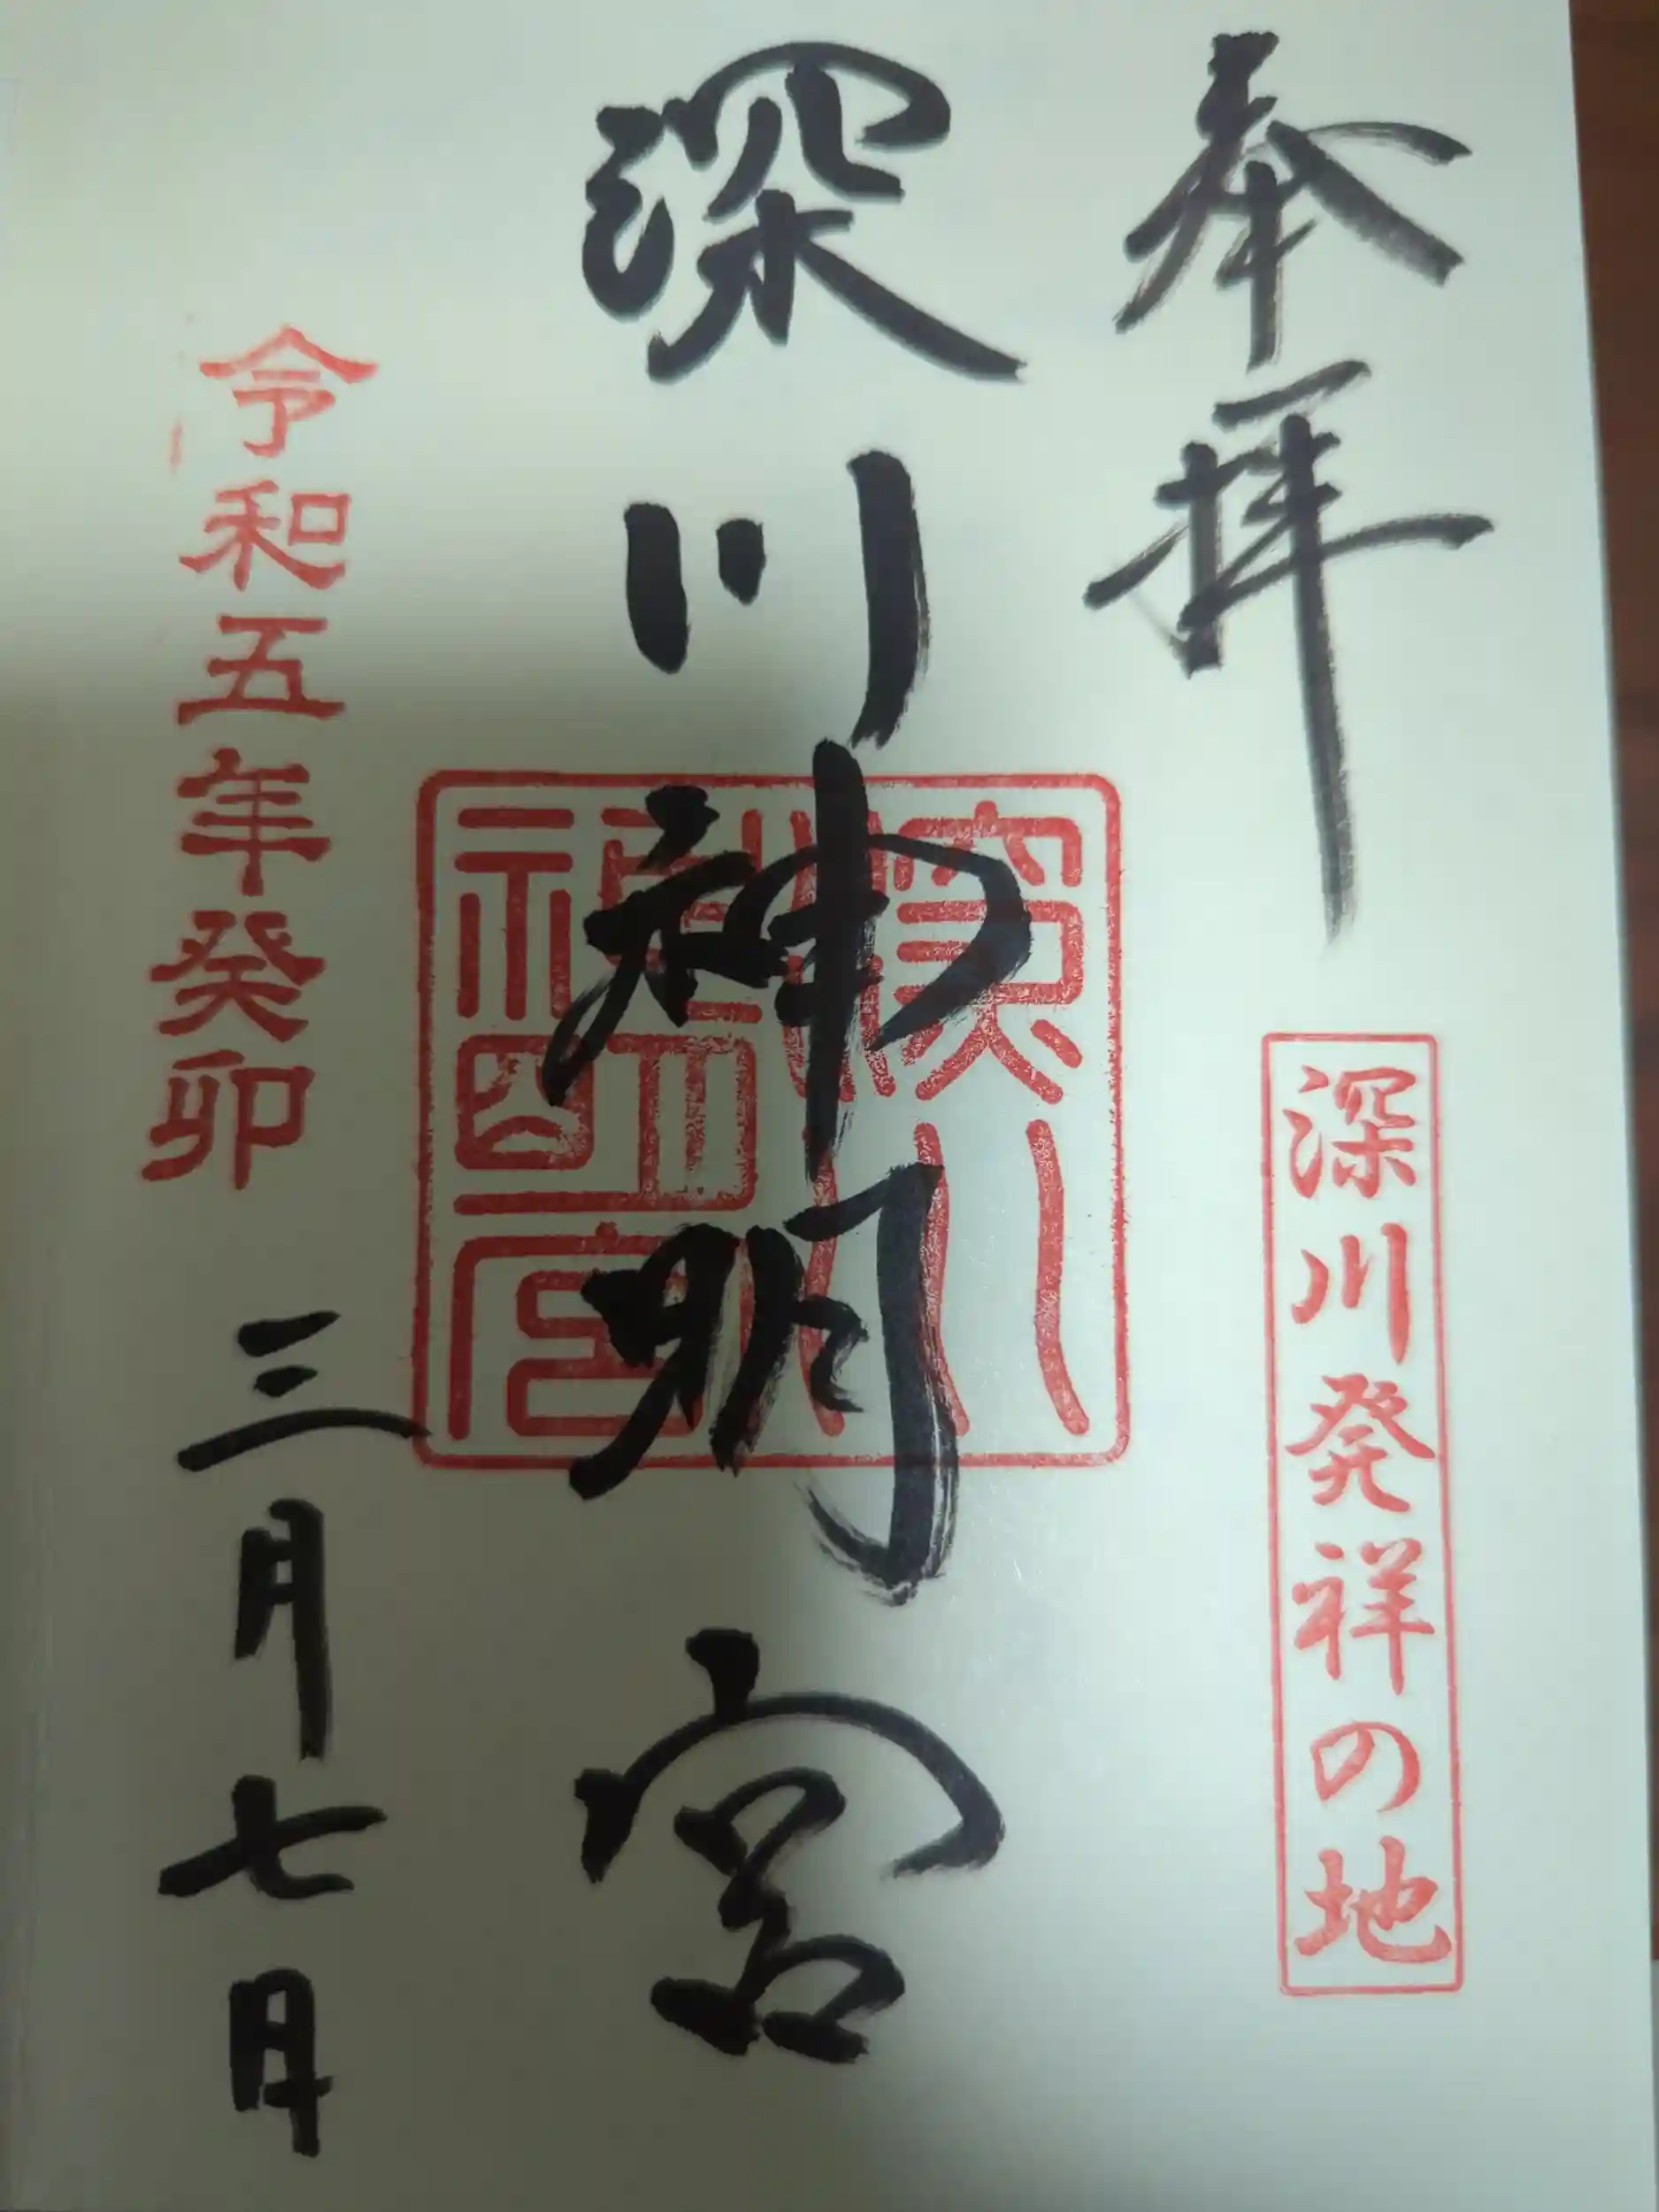 奉拝
深川発祥の地
深川神明宮
深川
神明宮
令和五年癸卯
三月七日